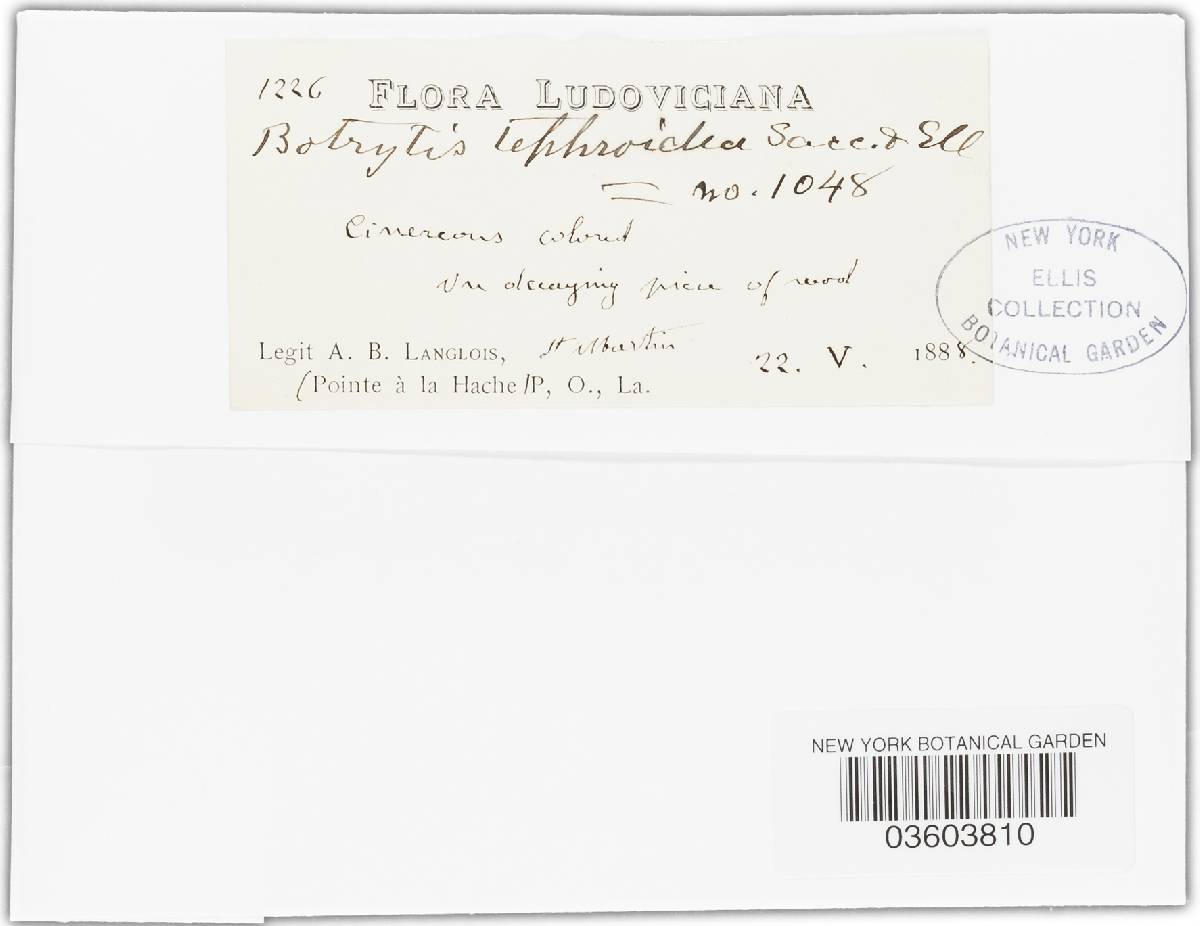 1226 FLORA LUDOVICIANA
Botrytis tephroidea Sacc. & Ell
= no. 1048
Cinereous colored
On decaying piece of wood
Legit A. B. LANGLOIS, St Martin 22. V. 1888.
(Pointe à la Hache/P, O., La.
NEW YORK
ELLIS
COLLECTION
BOTANICAL GARDEN
NEW YORK BOTANICAL GARDEN
03603810